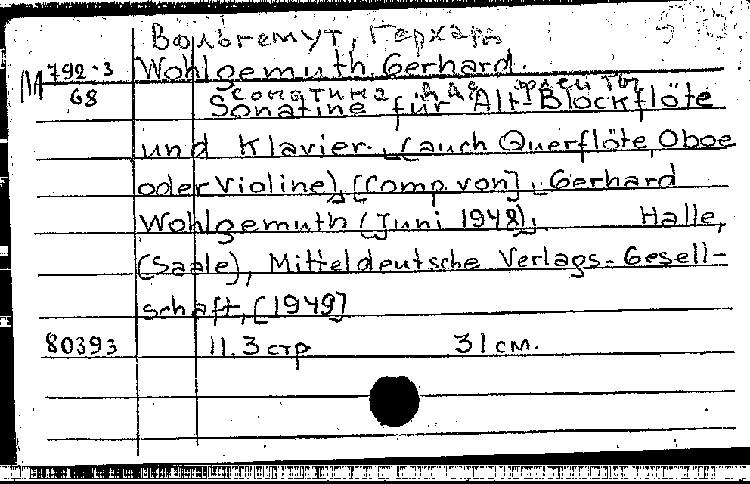 Вольгемут, Герхард
М 792-3
68
Wohlgemuth, Gerhard.
сонатина для флейты
Sonatine für Alt-Blockflöte
und Klavier. (auch Querflöte, Oboe
oder Violine), [Comp. von] Gerhard
Wohlgemuth (Juni 1948). Halle,
(Saale), Mitteldeutsche Verlags-Gesell-
schaft, [1949]
80393 11.3 стр 31 см.